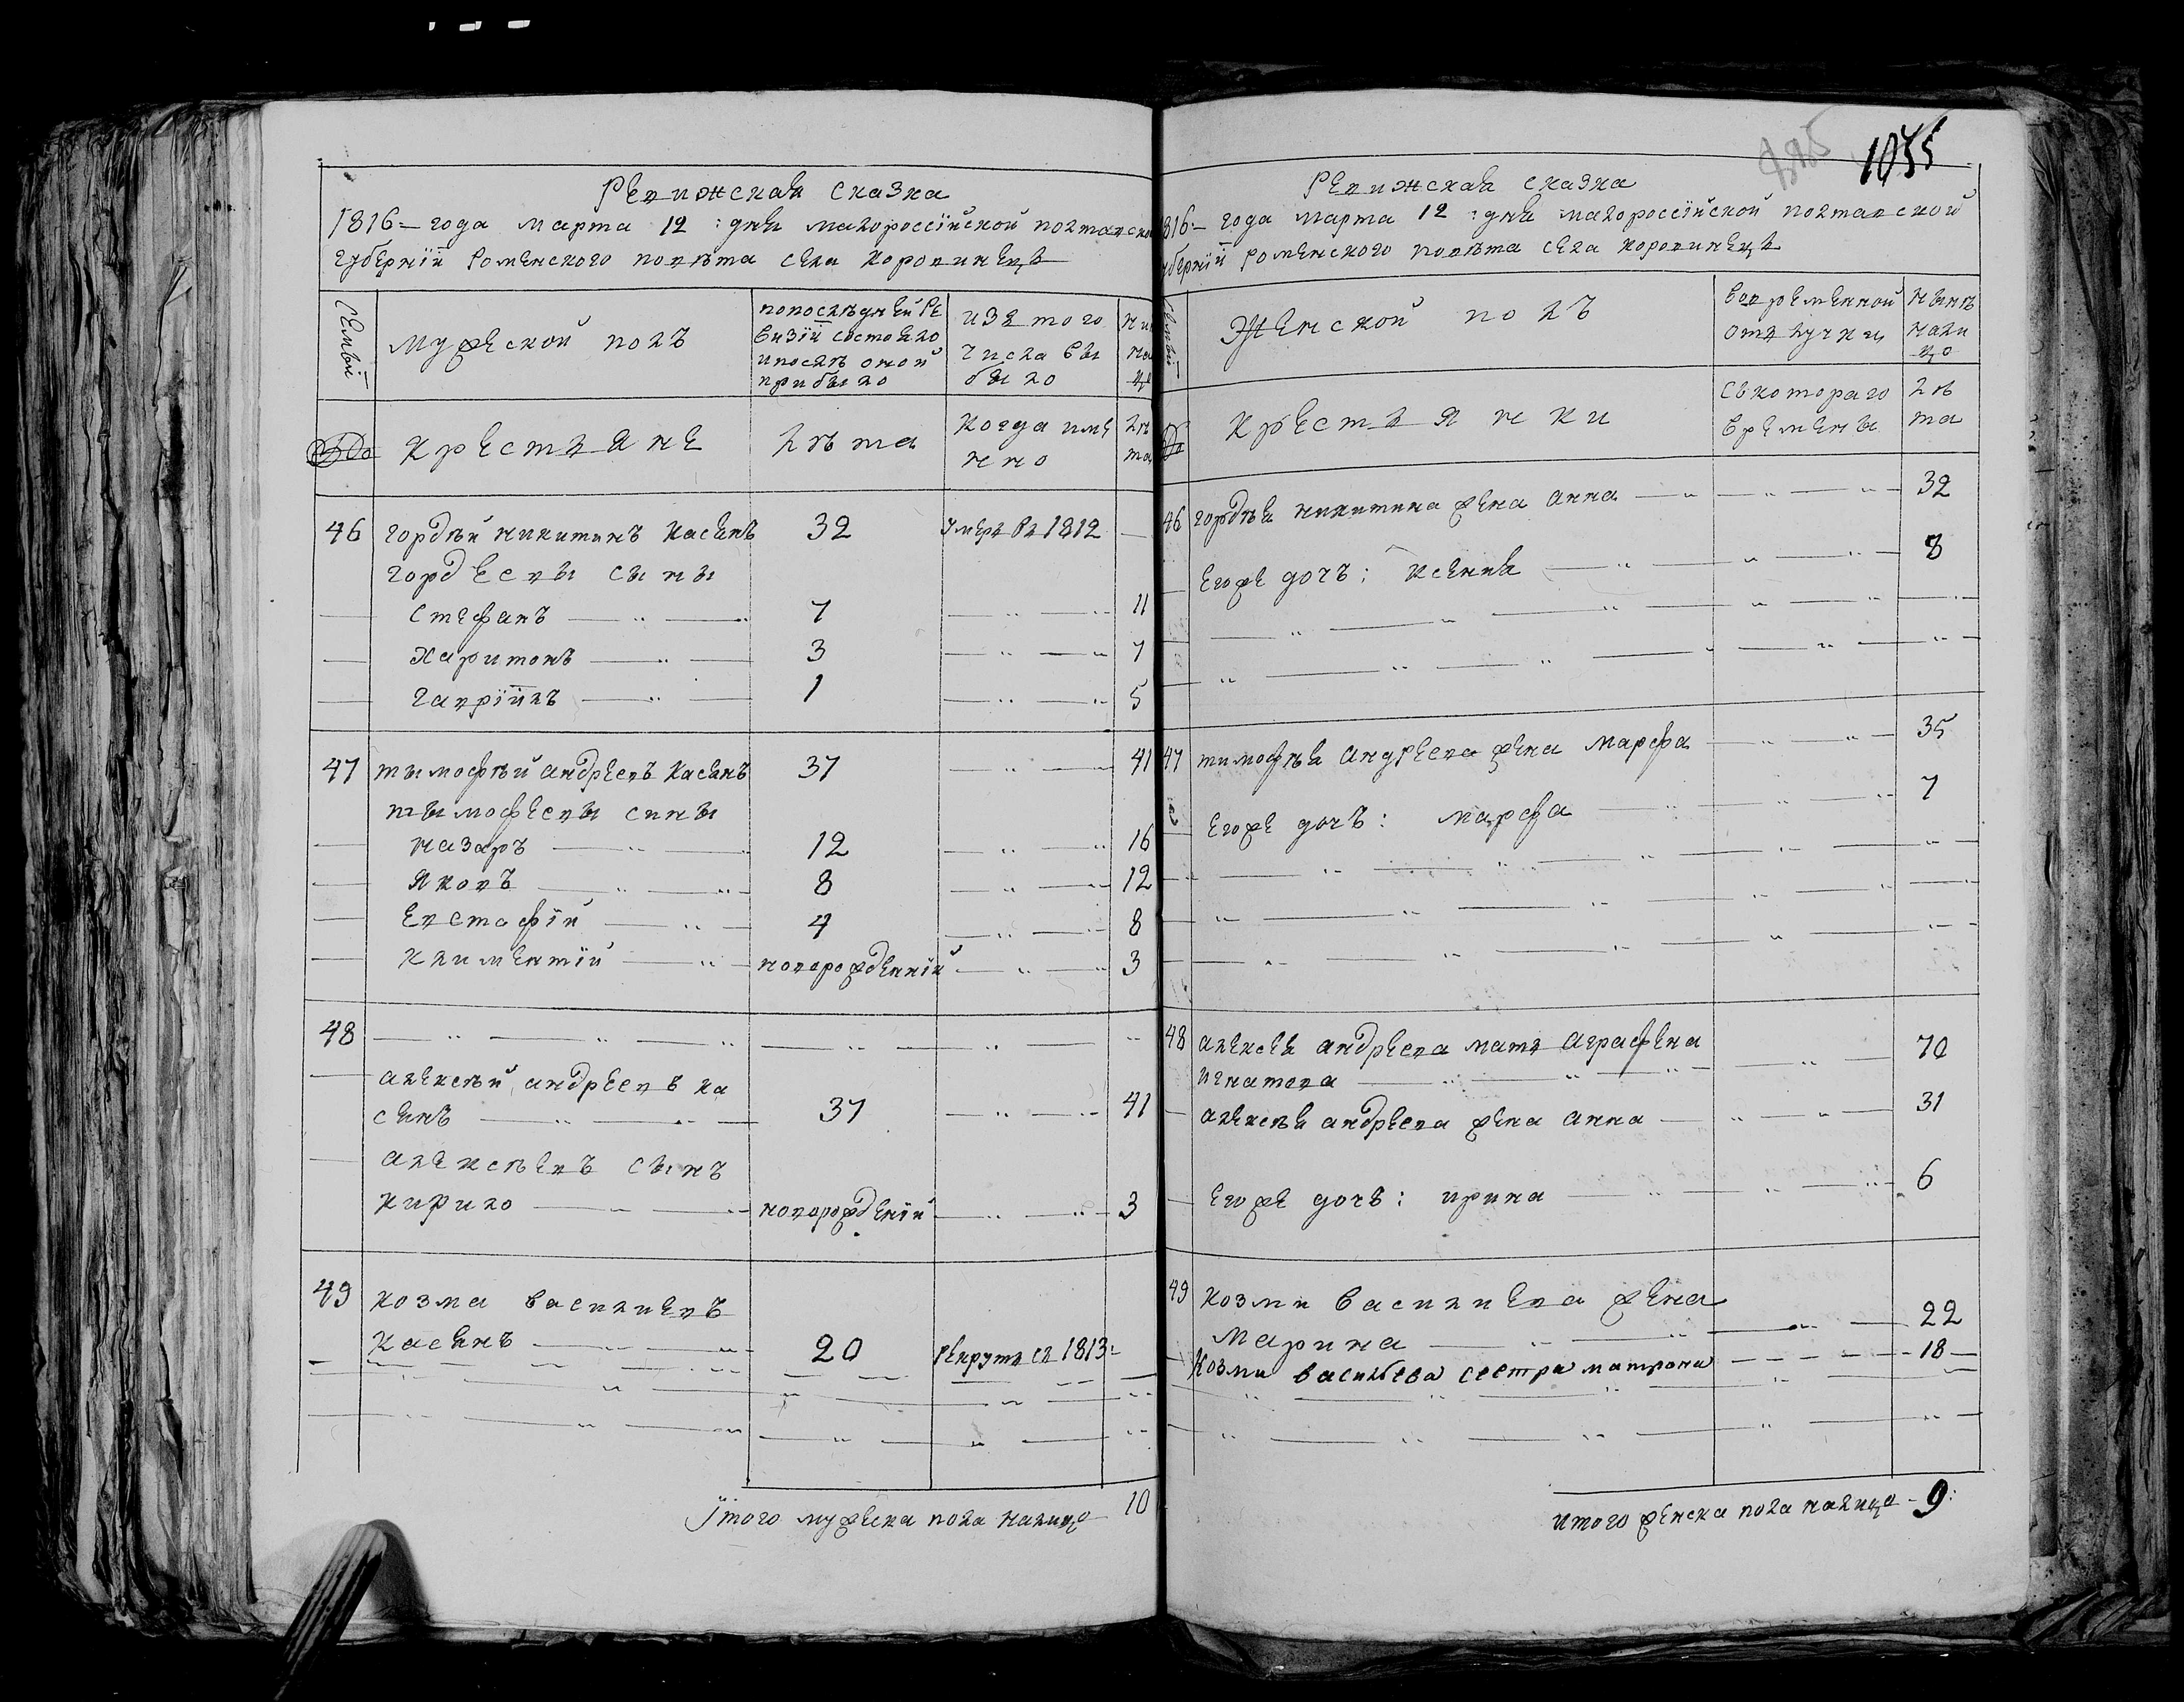 Ревижская сказка
1816 года марта 12: дня малороссїйской полтавской
губернїй роменского повѣта села коровинецъ
Семьй
мужеской полъ
попослѣдней ре
визїй состояло
ипослѣ оной
прибыло
изъ того
числа вы
было
№
крестъяне
лѣта
когда имѧ
нно
лѣ
та
46 гордѣй никитинъ касянъ 32 умеръ въ 1812
гордеевы сыны
Стефанъ 7 11
Харитонъ 3 7
гаврїилъ 1 5
47 тымофѣй андреевъ касянъ 37 41
тымофеевы сины
назаръ 12 16
Яковъ 8 12
Евстафїй 4 8
климентїй новорожденнїй 3
48
алексѣй андреевъ ка
сянъ 37 41
алексѣевъ сынъ
кирило новорожденїй 3
49 козма василиевъ
касянъ 20 рекрутъ съ 1813:
Їтого мужеска пола налицо 10
1055
Ревижская сказка
1816 года марта 12: дня малороссїйской полтавской
губернїй роменского повѣта села коровинецъ
Женской полъ
вовременной
отлучки
нынѣ
нали
цо
№
крестъянки
съкотораго
времены
лѣ
та
46 гордѣя никитина жена анна 32
Егоже дочъ: ксения 8
47 тимофѣя андреева жена марфа 35
Егоже дочъ: марфа 7
48 алексея андреева матъ аграфена 70
игнатова
алексѣя андреева жена анна 31
Егоже дочъ: ирина 6
49 козми василиева жена
марина 22
Козми васильева сестра матрона 18
итого женска пола налицо 9: